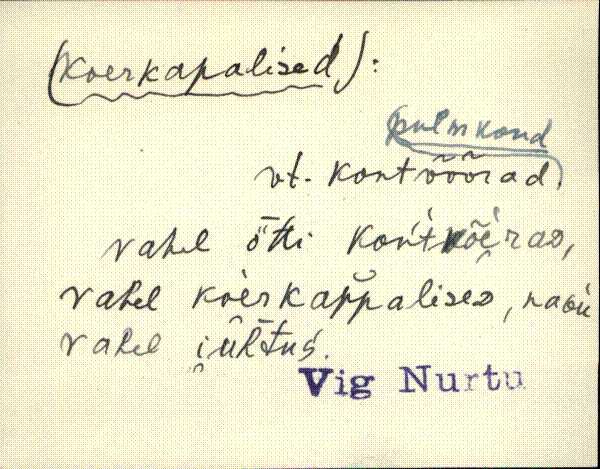 (koerkapalised):
pulmkond
vt. kontvõõrad.
vahel õtti kont́võèraᴅ,
vahel koèrkap̆palisᴇᴅ, naòu
vahel i̯ûh̄tus.
Vig Nurtu